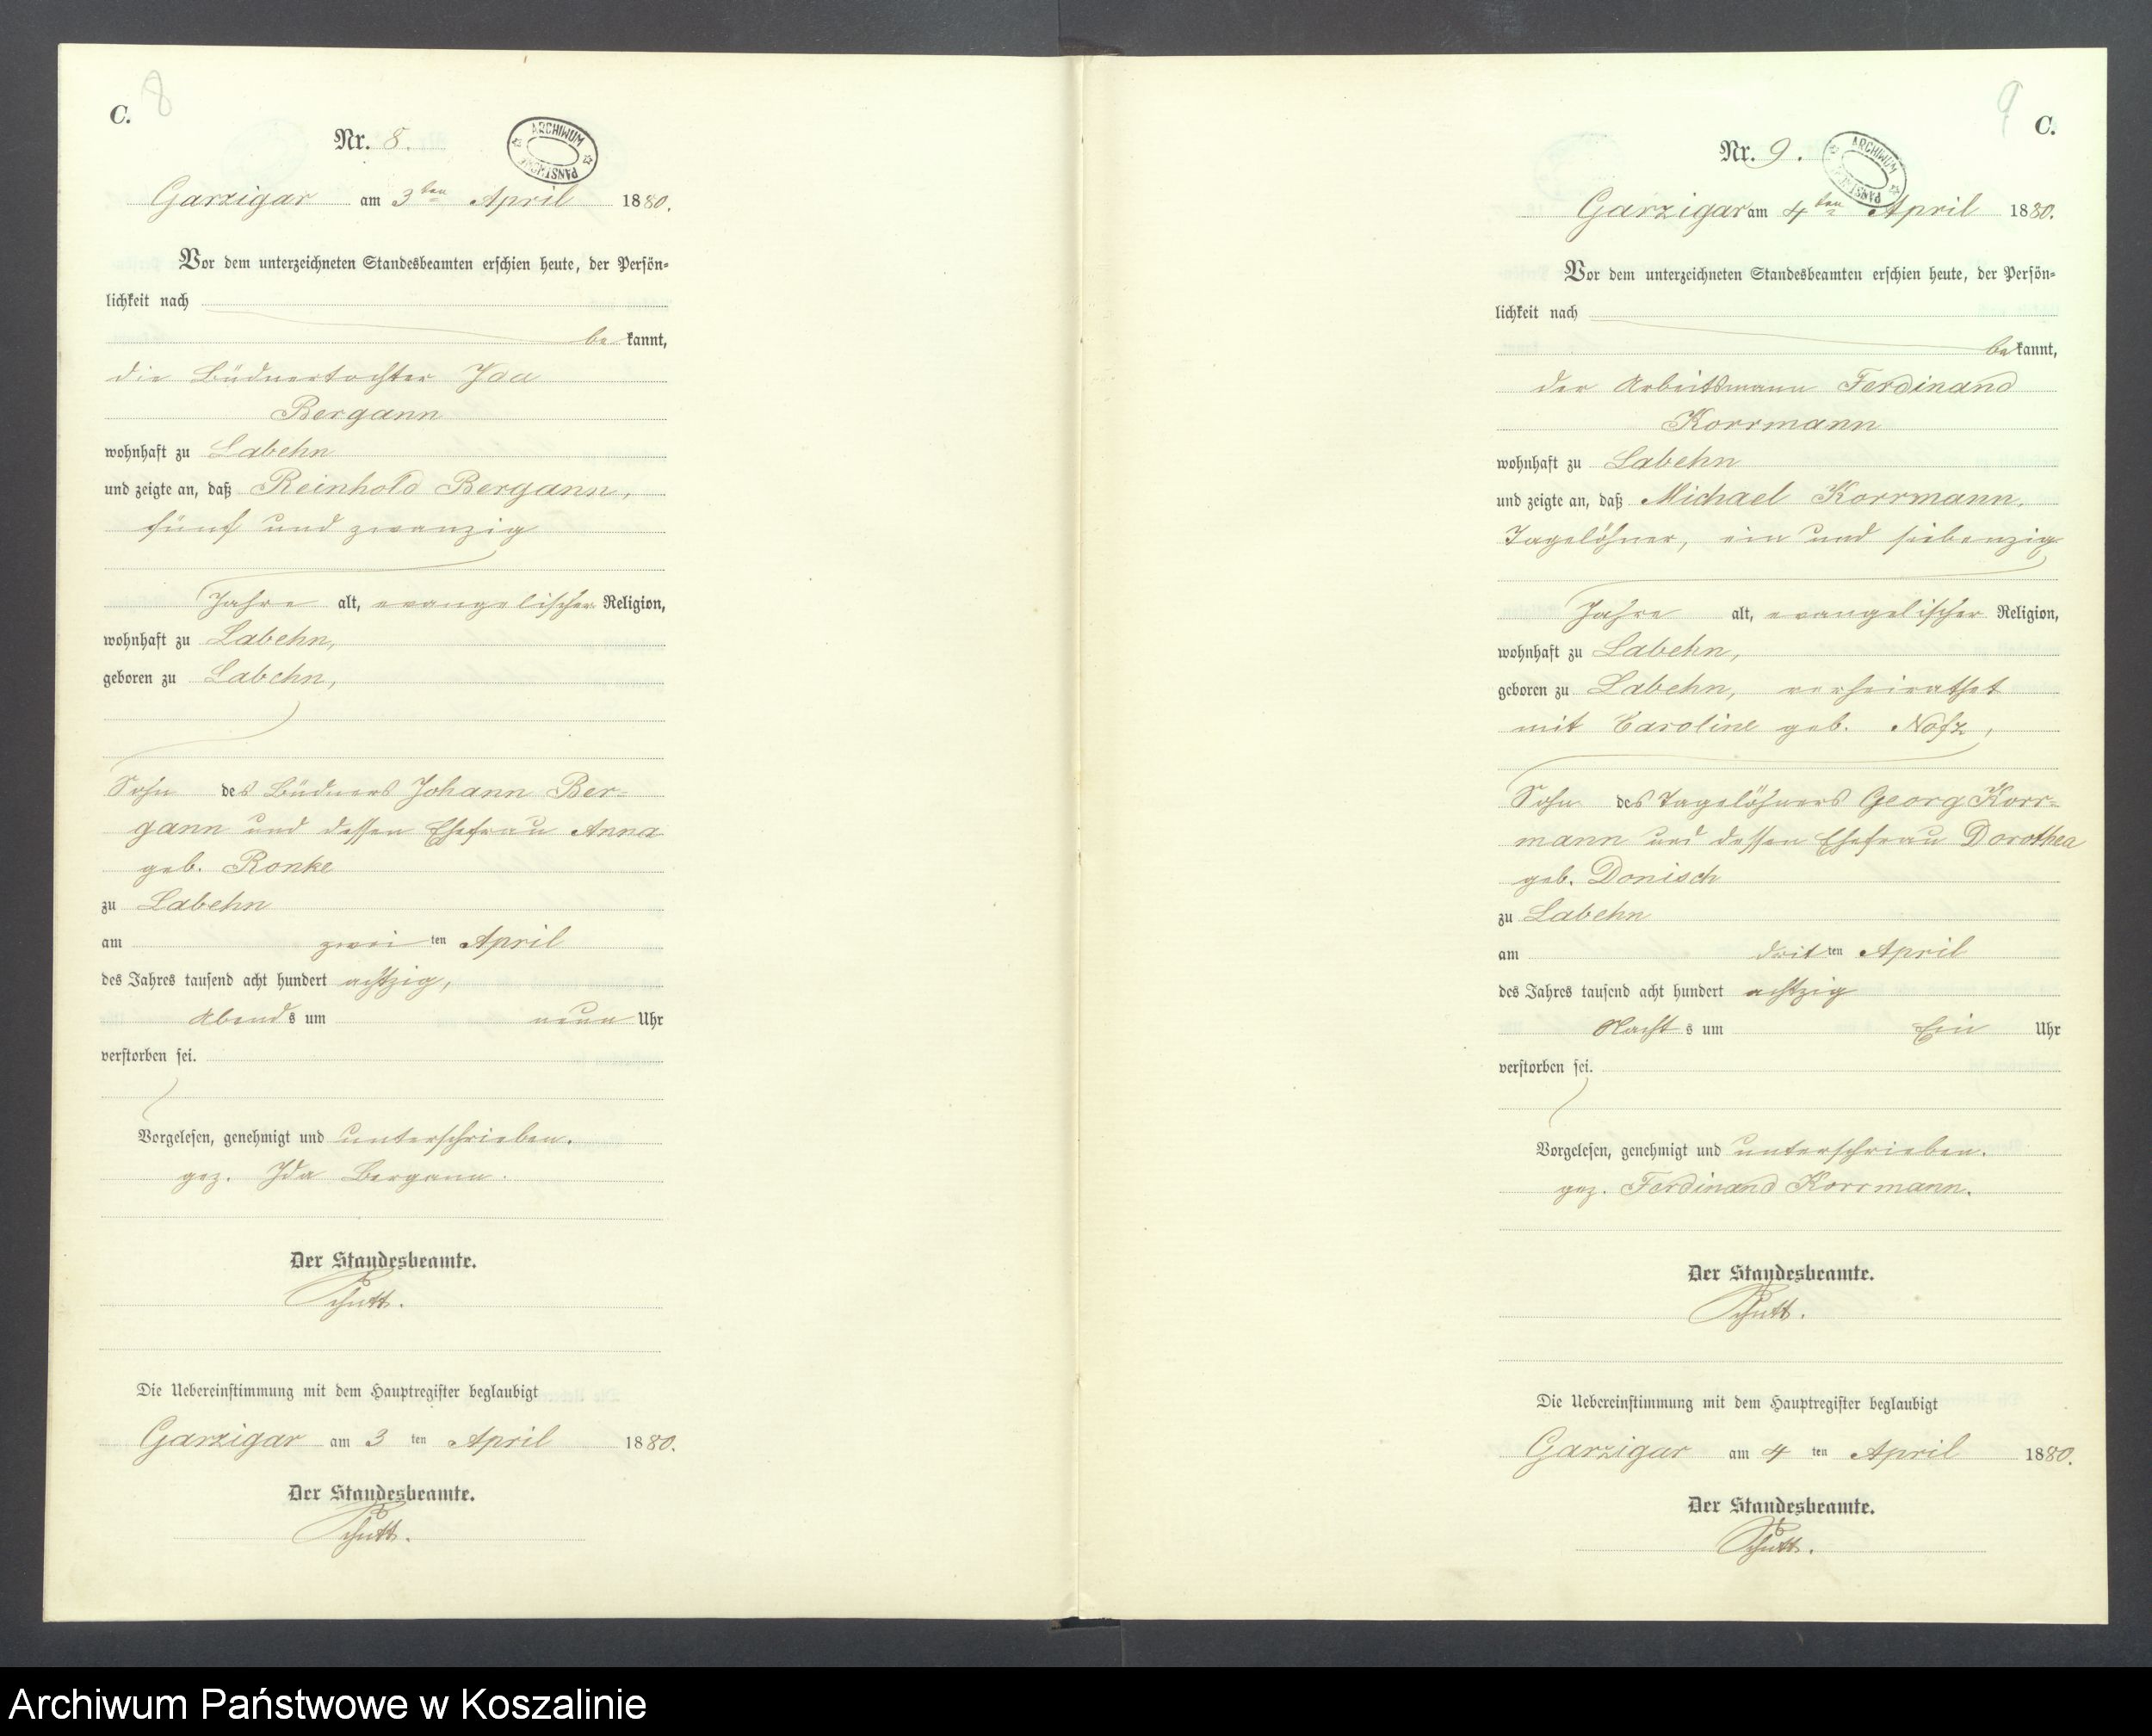 C. 8
Nr. 8.
ARCHIWUM PAŃSTWOWE
Garzigar am 3ten April 1880.
Vor dem unterzeichneten Standesbeamten erschien heute, der Persön-
lichkeit nach
be kannt,
die Büdnertochter Ida
Bergann
wohnhaft zu Labehn
und zeigte an, daß Reinhold Bergann,
fünf und zwanzig
Jahre alt, evangelischer Religion,
wohnhaft zu Labehn,
geboren zu Labehn,
Sohn des Büdners Johann Ber-
gann und dessen Ehefrau Anna
geb. Ronke
zu Labehn
am zwei ten April
des Jahres tausend acht hundert achtzig,
Abends um neun Uhr
verstorben sei.
Vorgelesen, genehmigt und unterschrieben.
gez. Ida Bergann.
Der Standesbeamte.
Schutt.
Die Uebereinstimmung mit dem Hauptregister beglaubigt
Garzigar am 3 ten April 1880.
Der Standesbeamte.
Schutt.
9 C.
Nr. 9.
ARCHIWUM PAŃSTWOWE
Garzigar am 4ten April 1880.
Vor dem unterzeichneten Standesbeamten erschien heute, der Persön-
lichkeit nach
be kannt,
der Arbeitsmann Ferdinand
Korrmann
wohnhaft zu Labehn
und zeigte an, daß Michael Korrmann,
Tagelöhner, ein und siebenzig
Jahre alt, evangelischer Religion,
wohnhaft zu Labehn,
geboren zu Labehn, verheirathet
mit Caroline geb.
Sohn des Tagelöhners Georg Korr-
mann und dessen Ehefrau Dorothea
geb. Donisch
zu Labehn
am drit ten April
des Jahres tausend acht hundert achtzig
Nachts um Ein Uhr
verstorben sei.
Vorgelesen, genehmigt und unterschrieben.
gez. Ferdinand Korrmann.
Der Standesbeamte.
Schutt.
Die Uebereinstimmung mit dem Hauptregister beglaubigt
Garzigar am 4 ten April 1880.
Der Standesbeamte.
Schutt.
Archiwum Państwowe w Koszalinie